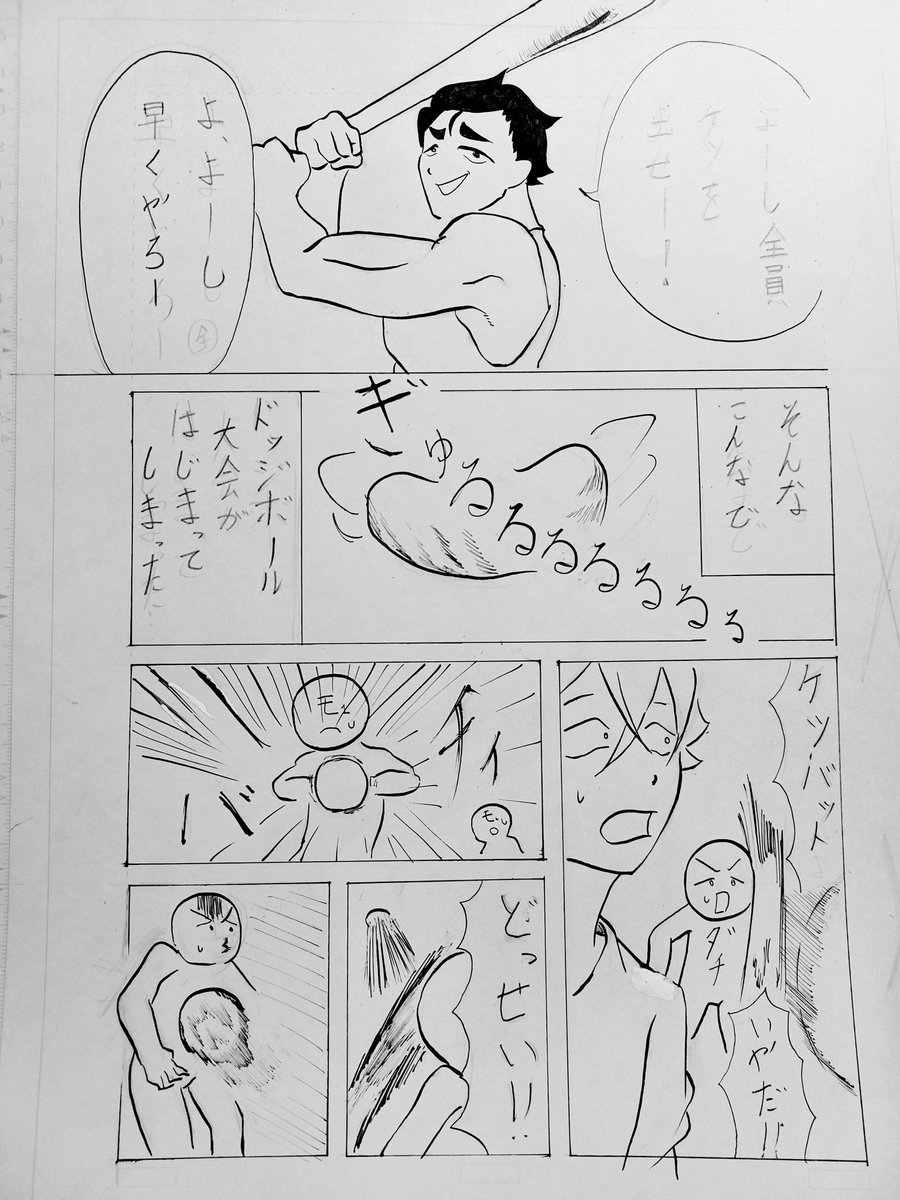 よーし全員
ケツを
出せー！
よ、よーし
早くやろー
全
そんな
こんなで
ギゅるるるるるるる
ドッジボール
大会が
はじまって
しまった
ケツバット
ダチ
いやだ!!
モブ
モブ
どっせい!!